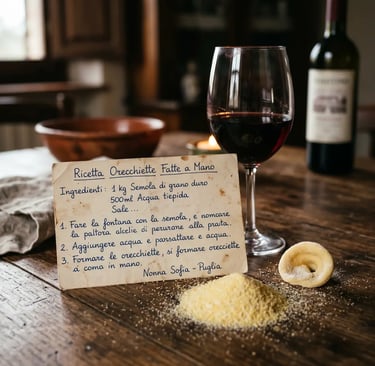 Ricetta Orecchiette Fatte a Mano
Ingredienti: 1 kg Semola di grano duro
500ml Acqua tiepida
Sale...
1. Fare la fontana con la semola, e noncare
la pattora alcelie di perurone alla prata.
2. Aggiungere acqua e parsattare e acqua.
3. Formare le orecchiette, si formare orecciette
si coma in mano.
Nonna Sofia - Puglia